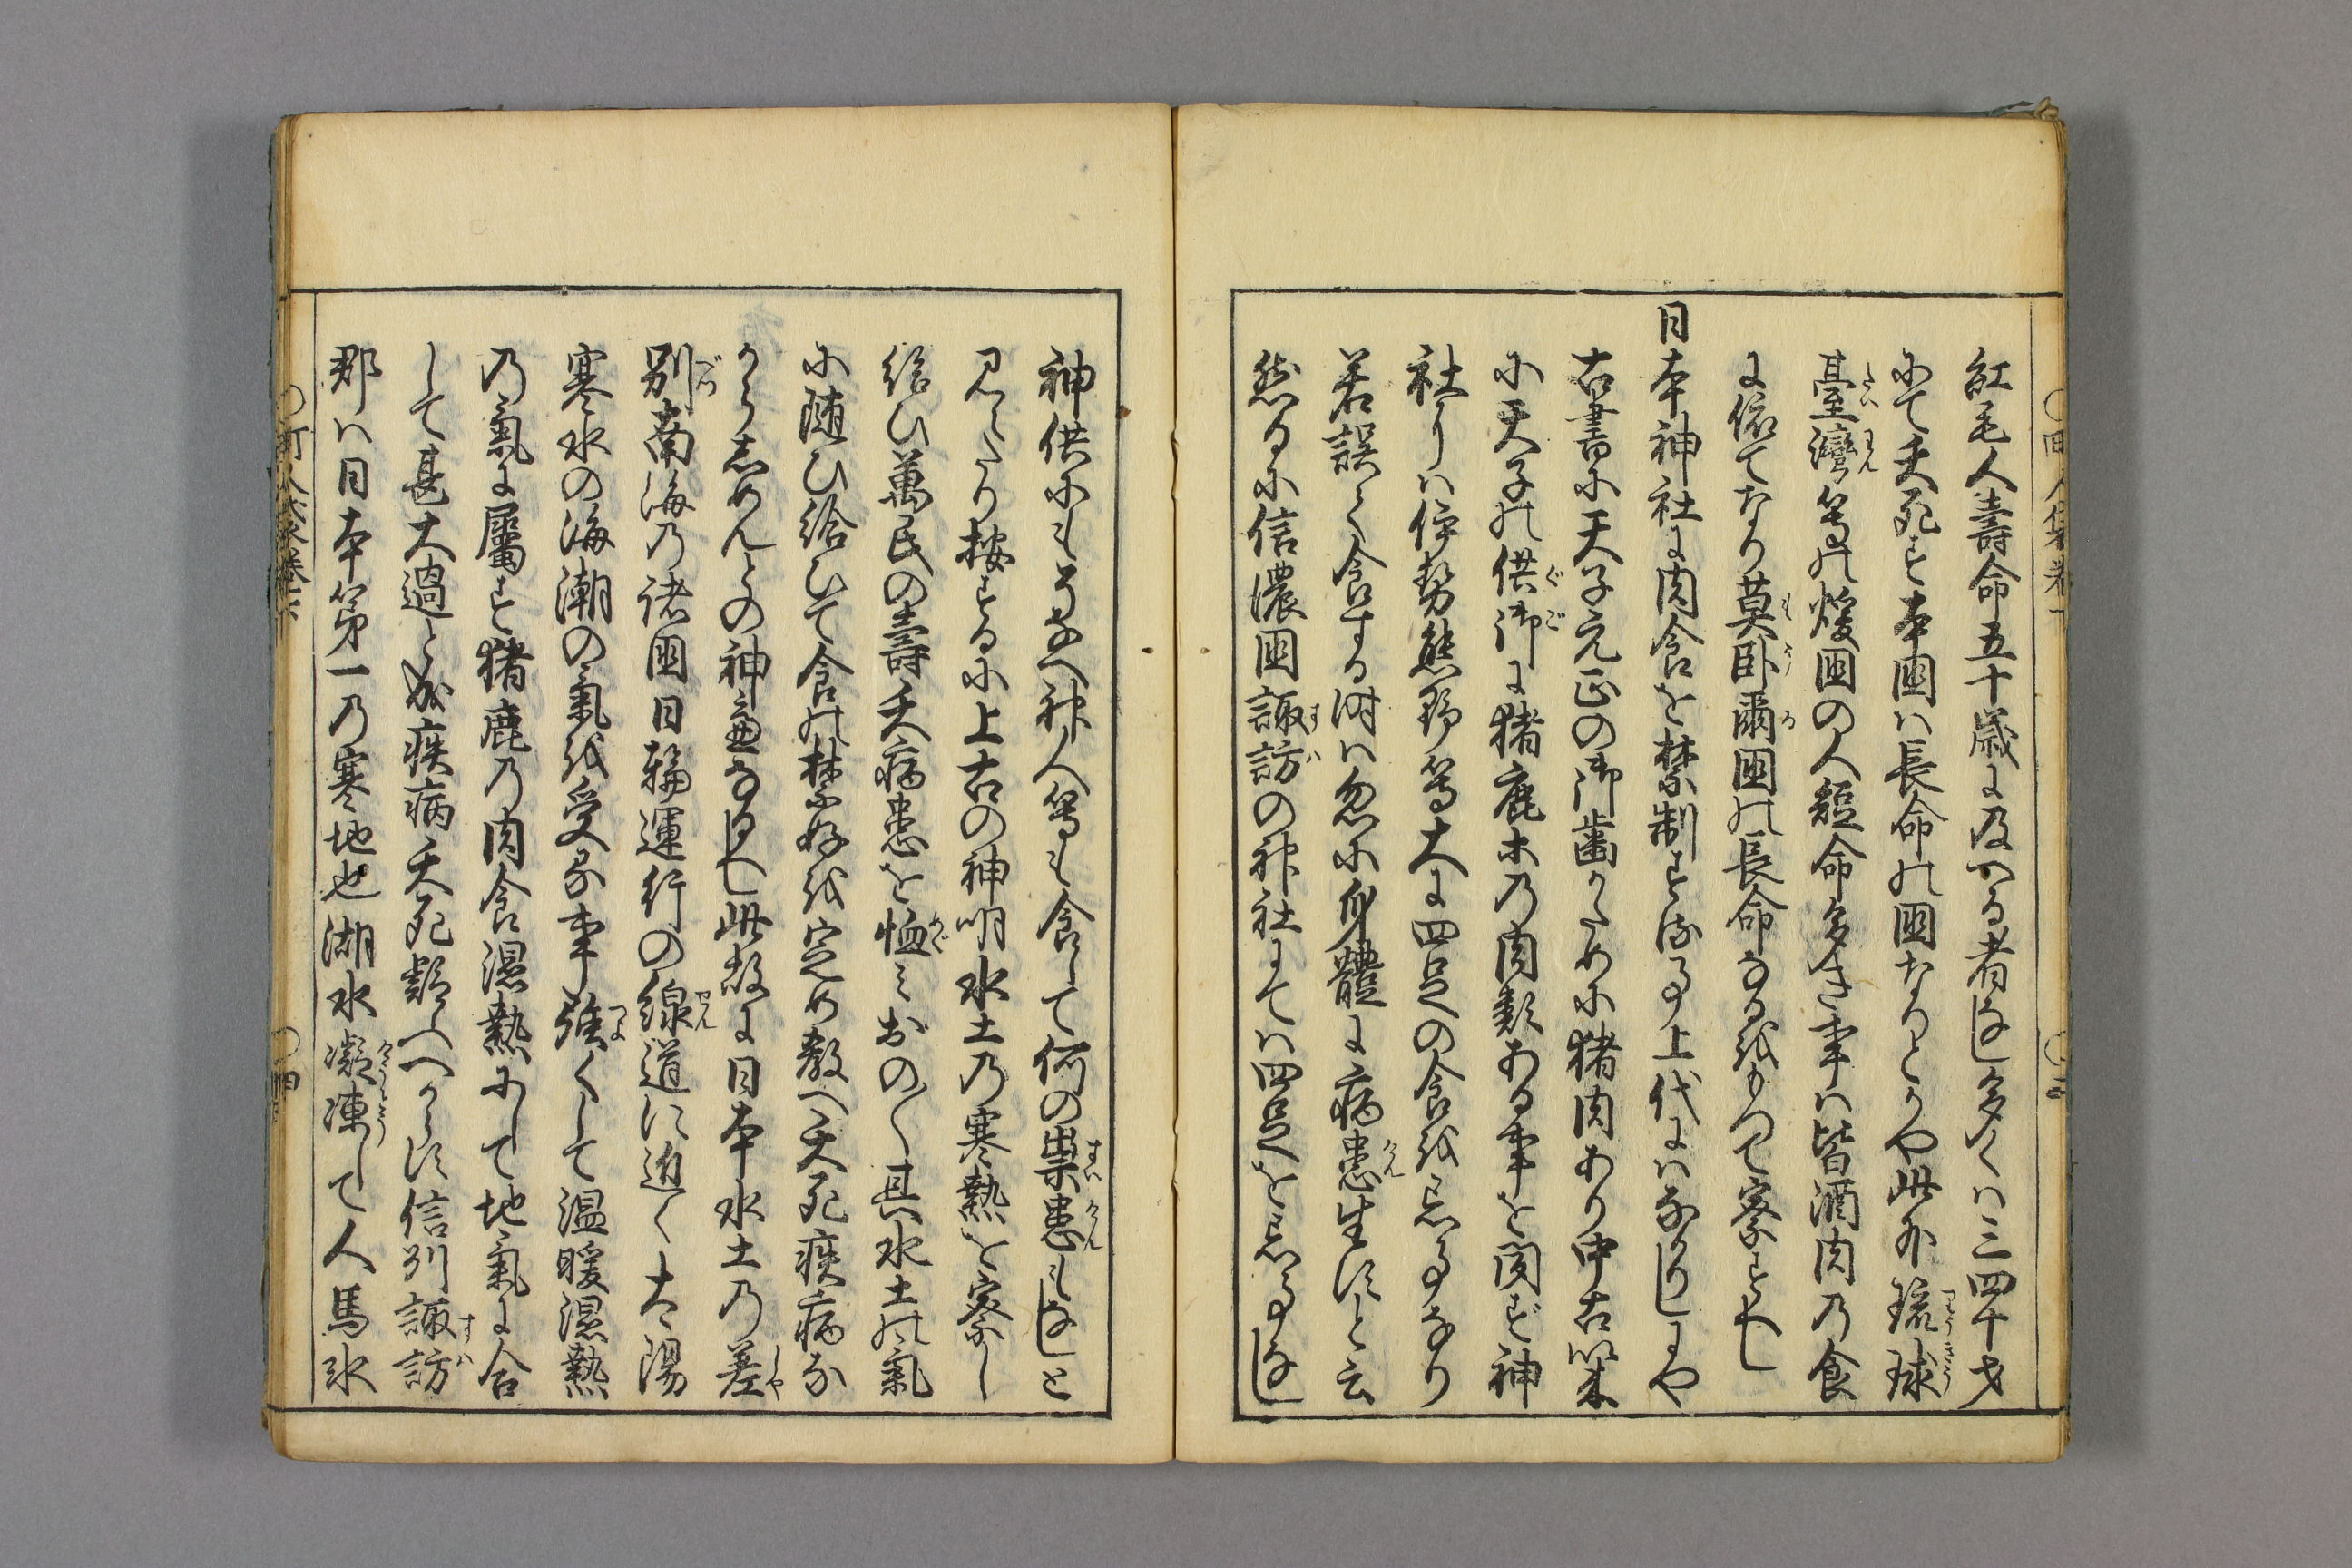 紅毛人壽命五十歳に及べる者なし多くは三四十才
にて夭死す本国は長命の国なるとかや此外琉球
臺灣等の煖国の人短命多き事は皆酒肉の食
に依てなり莫臥爾国の長命なるをもつて察すべし
日本神社に肉食を禁制する事上代にはなかりしにや
古書に天子元正の御歯がために猪肉あり中古以来
に天子の供御に猪鹿等の肉類ある事を聞ず神
社には伊勢熊野等大に四足の食を忌事なり
若誤て食する時は忽に身體に病患生ずと云
然るに信濃国諏訪の神社にては四足を忌事なし
神供にもそなへ神人等も食して何の祟患もなしと
見えたり按ずるに上古の神明水土の寒熱を察し
給ひ萬民の壽夭病患を恤みおの〱其水土の氣
に随ひ給ひて食の禁好を定め教へ夭死疾病な
からしめんとの神慮なるべし此故に日本水土の差
別南海の諸国日輪運行の線道に近く太陽
寒水の海潮の氣を受る事強くして温暖濕熱
の氣に屬す猪鹿の肉食濕熱にして地氣に合
して甚大過と成疾病夭死類ふべからず信州諏訪
郡は日本第一の寒地也湖水凝凍して人馬氷